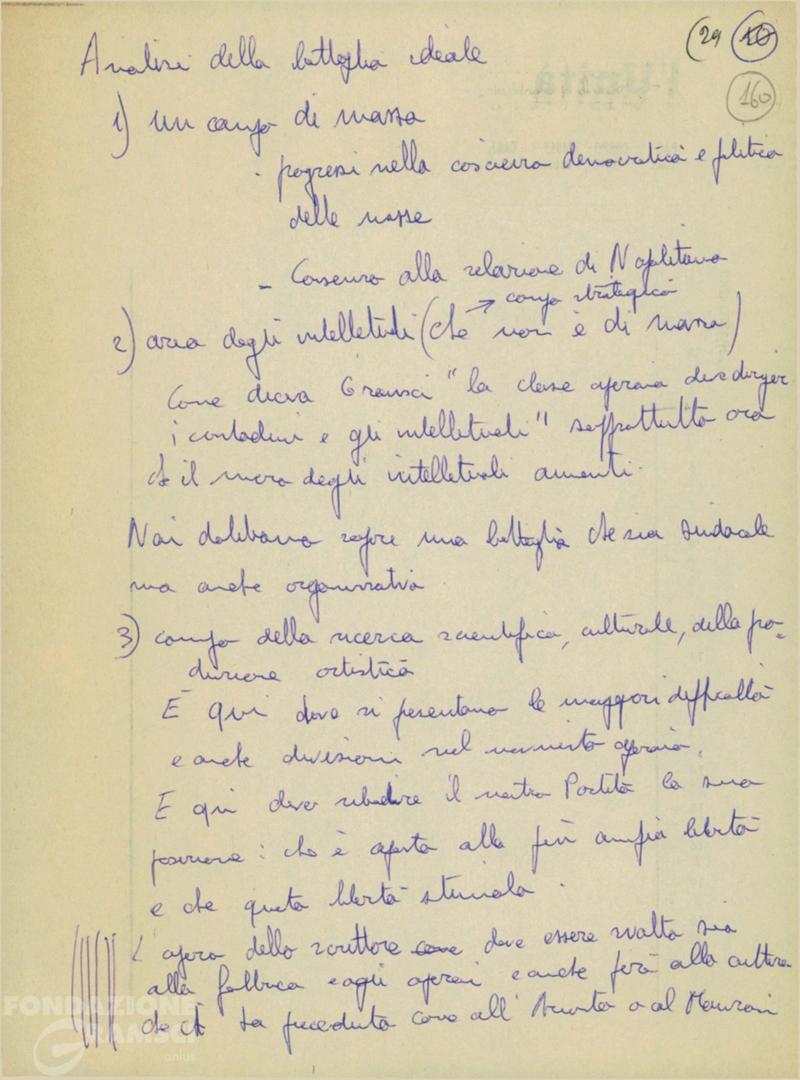 29 10
160
l'Unità
Analisi della battaglia ideale
1) un campo di massa
· progressi nella coscienza democratica e politica
delle masse
- Consenso alla relazione di Napolitano
→ campo strategico
2) area degli intellettuali (che non è di massa)
Come diceva Gramsci "la classe operaia deve diriger
i contadini e gli intellettuali" soprattutto ora
che il numero degli intellettuali aumenti.
Noi dobbiamo sapere una battaglia che sia sindacale
ma anche organizzativa
3) campo della ricerca scientifica, culturale, della pro-
duzione artistica
E qui dove si presentano le maggiori difficoltà
e anche divisioni nel movimento operaio.
E qui deve ribadire il nostro Partito la sua
posizione: che è aperta alla più ampia libertà
e che questa libertà stimola.
L'opera dello scrittore come deve essere svolta sia
alla fabbrica e agli operai e anche però alla cultura
che ci ha preceduto come all' o al Manzoni
FONDAZIONE
GRAMSCI
onlus